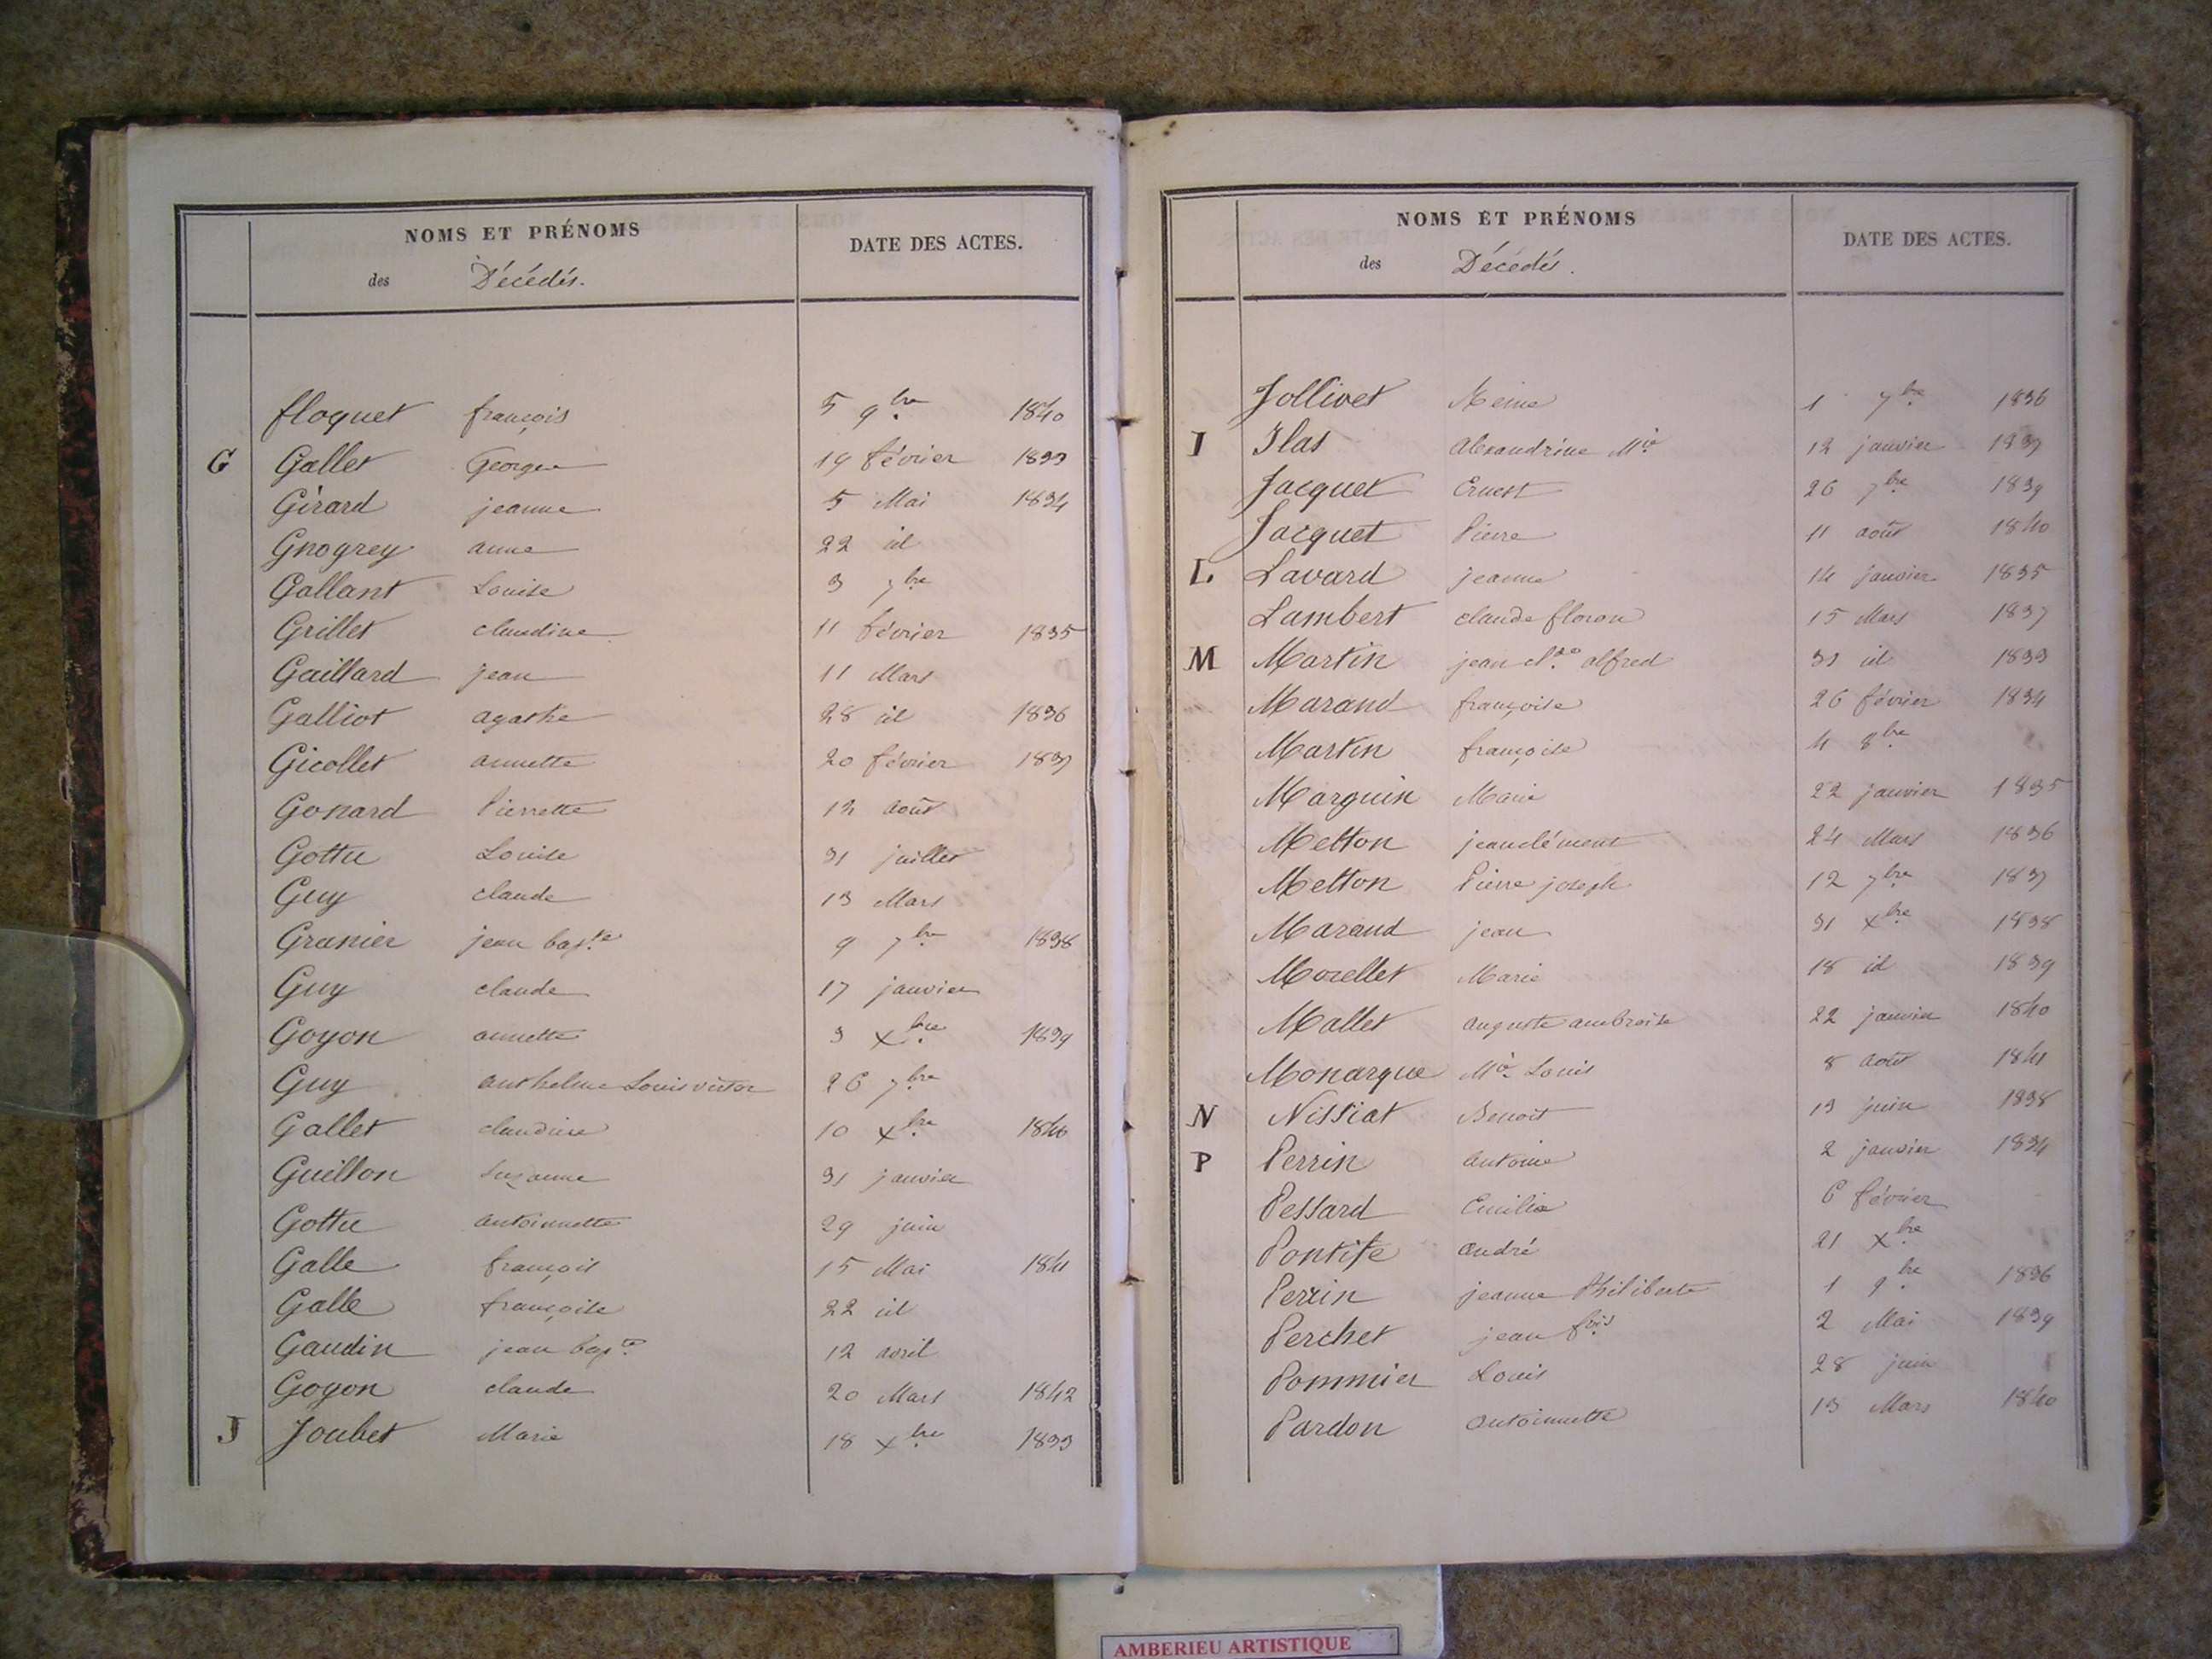 NOMS ET PRÉNOMS
des Décédés.
DATE DES ACTES.
floquet françois 5 9bre 1840
G Gallet George 19 février 1833
Girard jeanne 5 Mai 1834
Gnogrey anne 22 id
Gallant Louise 3 7bre
Grillet claudine 11 février 1835
Gaillard jean 11 Mars
Galliot agathe 28 id 1836
Gicollet annette 20 février 1837
Gonard Pierrette 12 août
Gottu Louise 31 juillet
Guy claude 13 Mars
Granier jean bapte 9 7bre 1838
Guy claude 17 janvier
Goyon annette 3 Xbre 1839
Guy anthelme Louis victor 26 7bre
Gallet claudine 10 Xbre 1840
Guillon Suzanne 31 janvier
Gottu antoinette 29 juin
Galle françois 15 Mai 1841
Galle françoise 22 id
Gaudin jean bapte 12 avril
Goyon claude 20 Mars 1842
J Joubet Marie 18 Xbre 1833
NOMS ET PRÉNOMS
des Décédés.
DATE DES ACTES.
Jollivet Reine 1 7bre 1836
I Ilas alexandrine Mie 12 janvier 1837
Jacquet Ernest 26 7bre 1839
Jacquet Pierre 11 août 1840
L Lavard jeanne 14 janvier 1835
Lambert claude floron 15 Mars 1837
M Martin jean clde alfred 31 id 1833
Marand françoise 26 février 1834
Martin françoise 4 8bre
Marguin Marie 22 janvier 1835
Metton jean clément 24 Mars 1836
Metton Pierre joseph 12 7bre 1837
Marand jean 31 Xbre 1838
Morellet Marie 18 id 1839
Mallet auguste ambroise 22 janvier 1840
Monarque Mie Louis 8 août 1841
N Nissiat Benoit 13 juin 1838
P Perrin antoine 2 janvier 1834
Pessard Emilie 6 février
Pontife andré 21 Xbre
Perrin jeanne Philiberte 1 9bre 1836
Perchet jean fois 2 Mai 1839
Pommier Louis 28 juin
Pardon antoinette 13 Mars 1840
AMBERIEU ARTISTIQUE